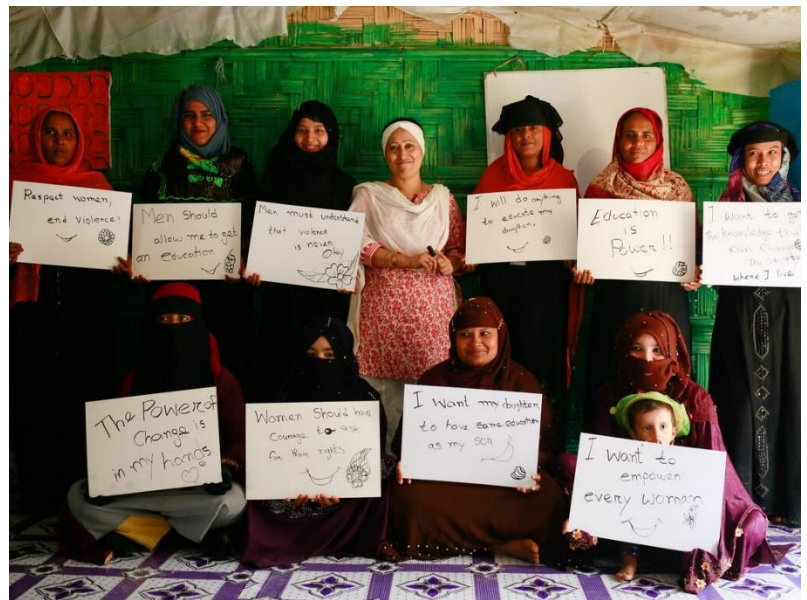 Respect women,
end violence!
Men Should
allow me to get
an education
Men must understand
that violence
is never
Okay
I will do anything
to educate my
daughter,
Education
is
Power!!
I want to get
the knowledge that
Can Change
The Society
where I live
The Power of
Change is
in my hands
Women Should have
Courage to ask
for their rights
I Want my daughter
to have same education
as my son
I Want to
empower
every woman